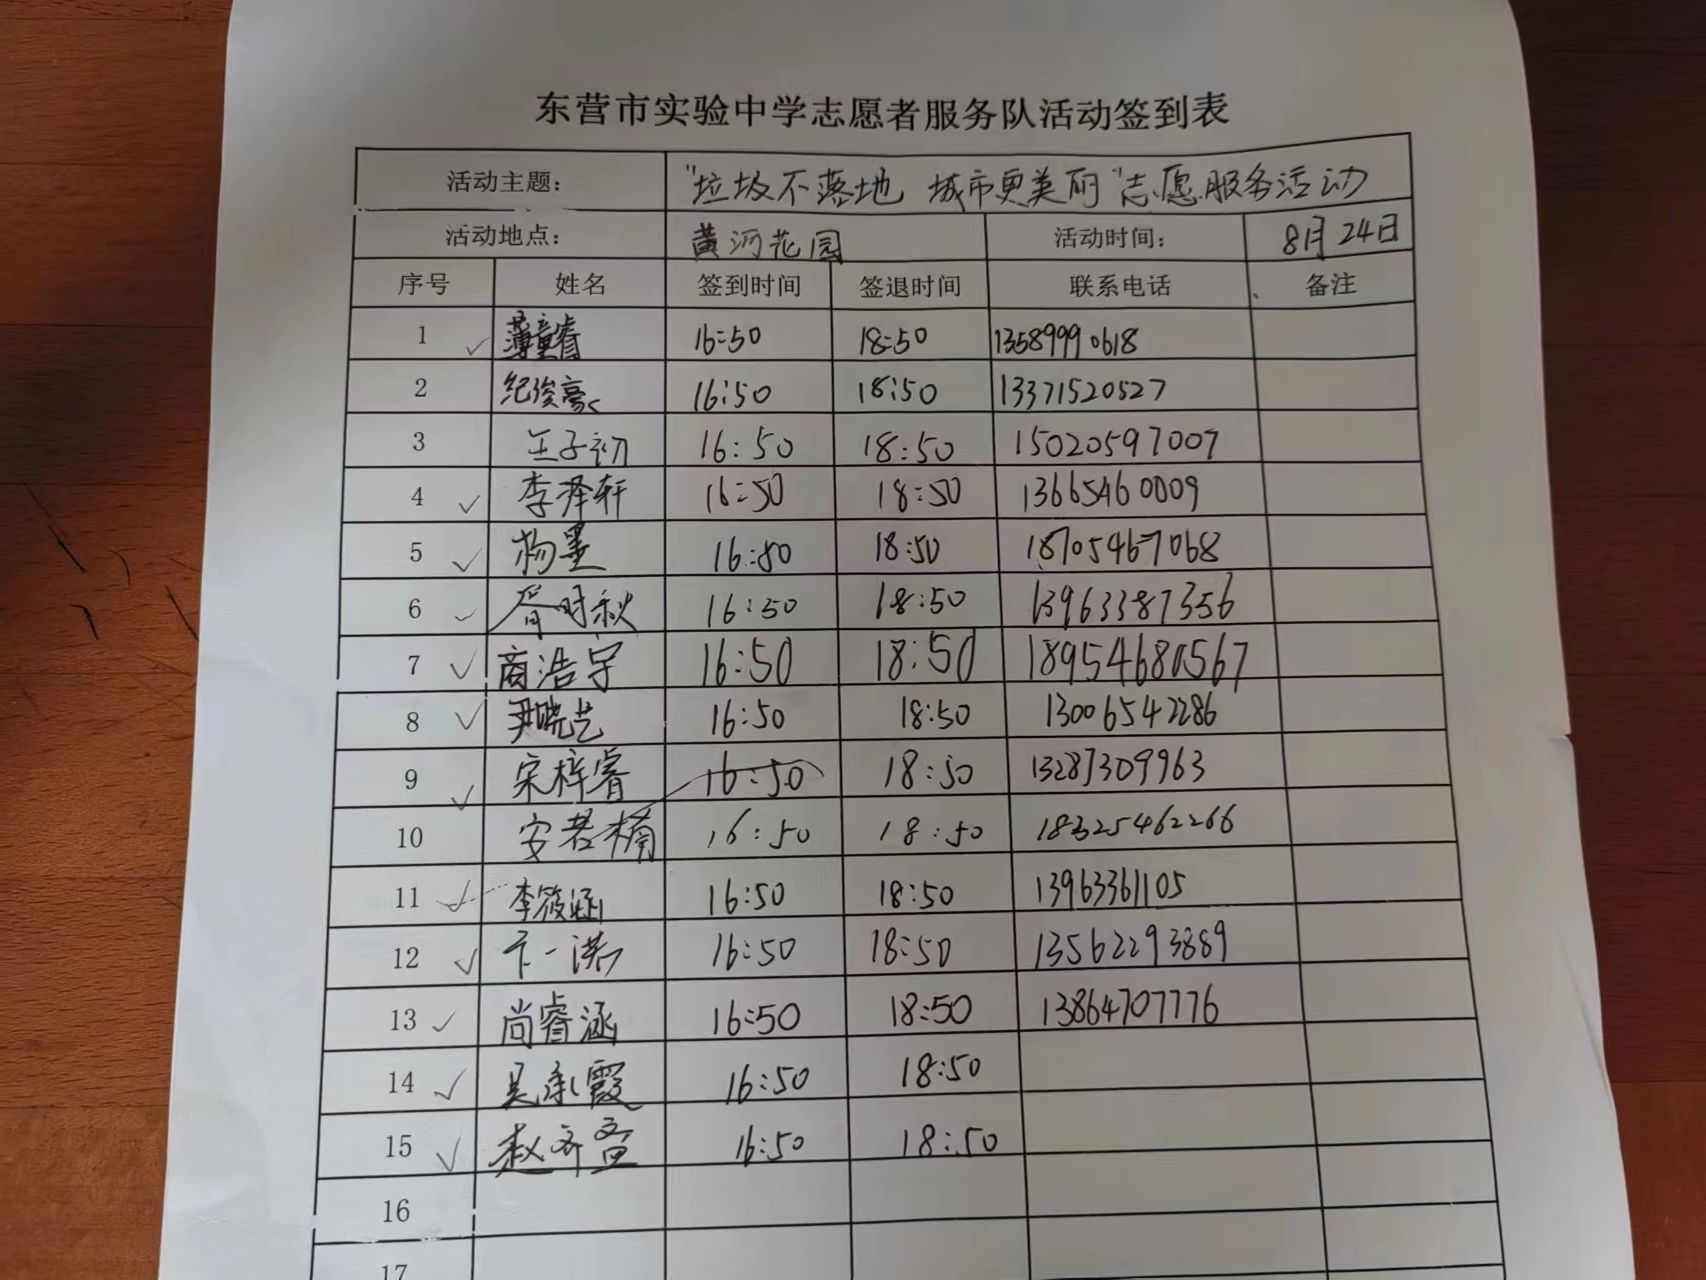 东营市实验中学志愿者服务队活动签到表
活动主题： "垃圾不落地 城市更美丽"志愿服务活动
活动地点： 黄河花园 活动时间： 8月24日
序号 姓名 签到时间 签退时间 联系电话 备注
1 薄童睿 16:50 18:50 13589990618
2 纪俊豪 16:50 18:50 13371520527
3 王子初 16:50 18:50 15020597007
4 李泽轩 16:50 18:50 13665460009
5 杨墨 16:50 18:50 18705467068
6 胥时秋 16:50 18:50 13963387356
7 商浩宇 16:50 18:50 18954680567
8 尹晓艺 16:50 18:50 13006542286
9 宋梓睿 16:50 18:50 13287309963
10 安若楠 16:50 18:50 18325462266
11 李筱涵 16:50 18:50 13963361105
12 卞一 16:50 18:50 13562293889
13 尚睿涵 16:50 18:50 13864707776
14 吴承霞 16:50 18:50
15 赵齐 16:50 18:50
16
17